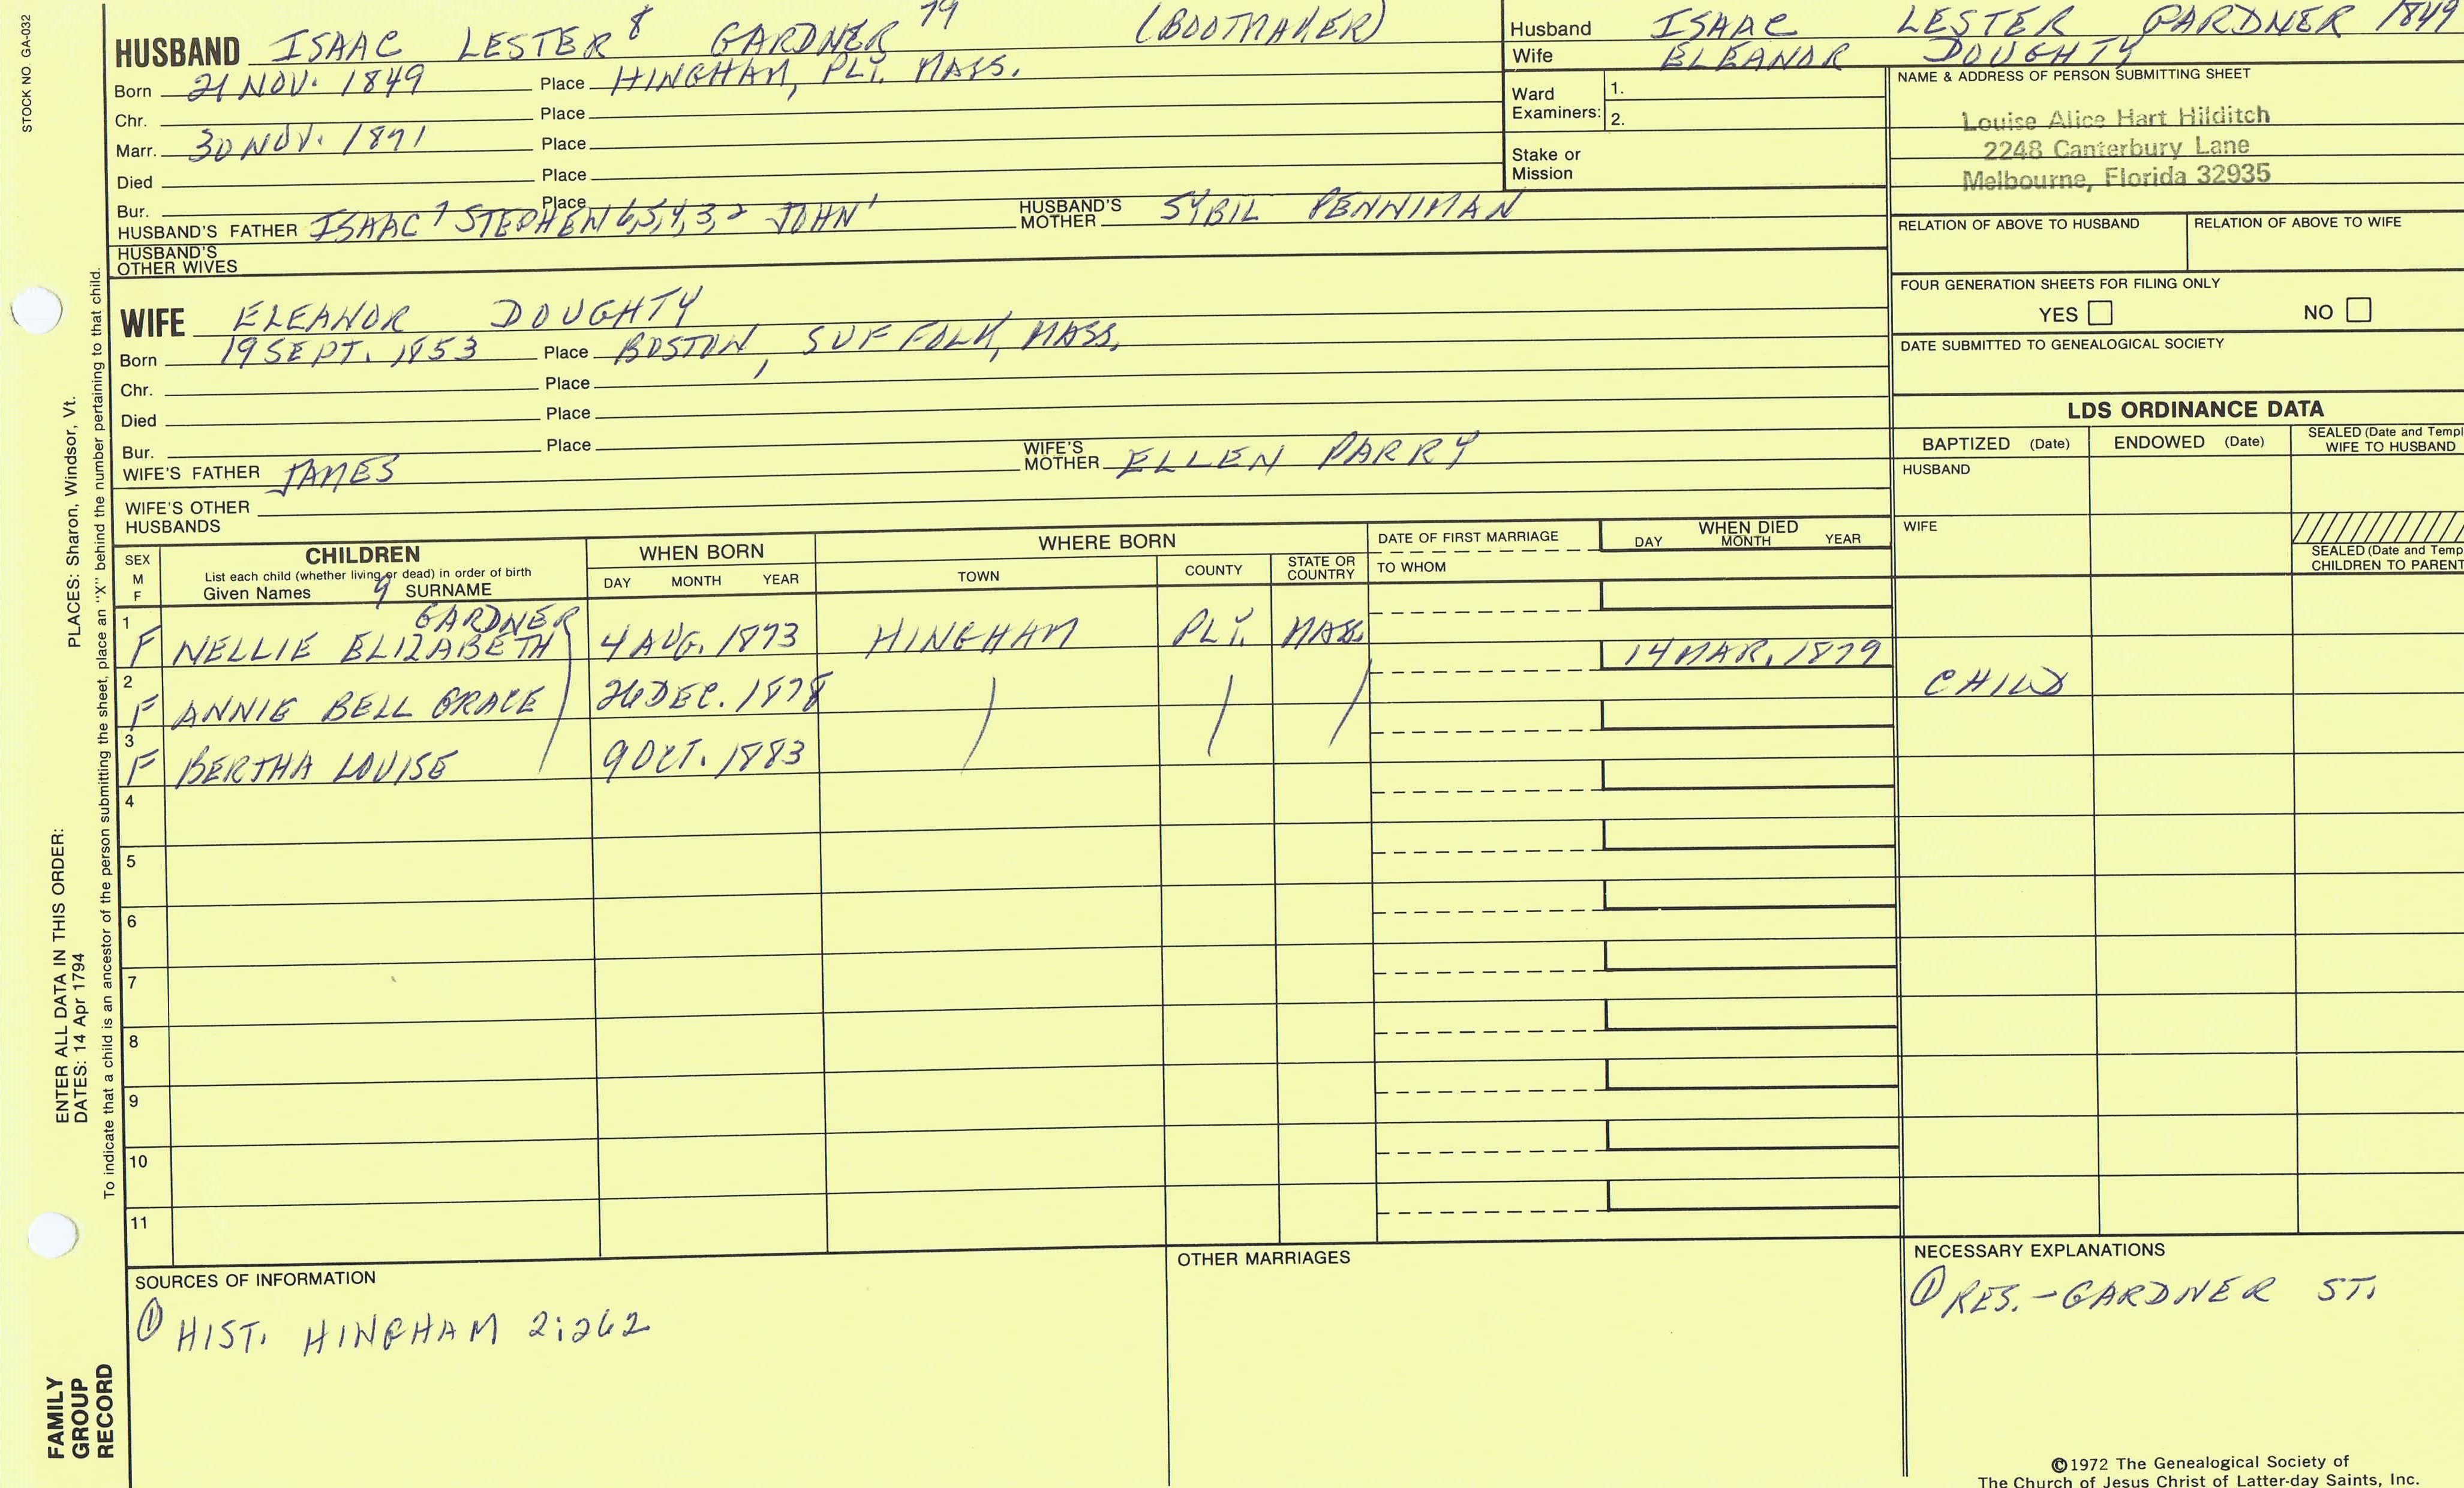 STOCK NO. GA-032
HUSBAND ISAAC LESTER⁸ GARDNER 79 (BOOTMAKER)
Born 21 NOV. 1849 Place HINGHAM, PLY. MASS.
Chr. Place
Marr. 30 NOV. 1871 Place
Died Place
Bur. Place
HUSBAND'S FATHER ISAAC⁷ STEPHEN⁶,⁵,⁴,³,² JOHN¹ HUSBAND'S MOTHER SYBIL PENNIMAN
HUSBAND'S OTHER WIVES
WIFE ELEANOR DOUGHTY
Born 19 SEPT. 1853 Place BOSTON, SUFFOLK, MASS.
Chr. Place
Died Place
Bur. Place
WIFE'S FATHER JAMES WIFE'S MOTHER ELLEN PARRY
WIFE'S OTHER HUSBANDS
Husband ISAAC LESTER GARDNER 1849
Wife ELEANOR DOUGHTY
Ward Examiners: 1.
2.
Stake or Mission
NAME & ADDRESS OF PERSON SUBMITTING SHEET
Louise Alice Hart Hilditch
2248 Canterbury Lane
Melbourne, Florida 32935
RELATION OF ABOVE TO HUSBAND RELATION OF ABOVE TO WIFE
FOUR GENERATION SHEETS FOR FILING ONLY
YES NO
DATE SUBMITTED TO GENEALOGICAL SOCIETY
LDS ORDINANCE DATA
BAPTIZED (Date) ENDOWED (Date) SEALED (Date and Templ
WIFE TO HUSBAND
HUSBAND
WIFE
SEALED (Date and Temp
CHILDREN TO PARENT
SEX M F
CHILDREN
List each child (whether living or dead) in order of birth
Given Names 9 SURNAME
WHEN BORN
DAY MONTH YEAR
WHERE BORN
TOWN COUNTY STATE OR COUNTRY
DATE OF FIRST MARRIAGE
TO WHOM
WHEN DIED
DAY MONTH YEAR
GARDNER
1 F NELLIE ELIZABETH 4 AUG. 1873 HINGHAM PLY. MASS.
2 F ANNIE BELL GRACE 26 DEC. 1878 14 MAR. 1879 CHILD
3 F BERTHA LOUISE 9 OCT. 1883
4
5
6
7
8
9
10
11
SOURCES OF INFORMATION
① HIST. HINGHAM 2:262
OTHER MARRIAGES
NECESSARY EXPLANATIONS
① RES. - GARDNER ST.
©1972 The Genealogical Society of
The Church of Jesus Christ of Latter-day Saints, Inc.
PLACES: Sharon, Windsor, Vt.
To indicate that a child is an ancestor of the person submitting the sheet, place an "X" behind the number pertaining to that child.
ENTER ALL DATA IN THIS ORDER:
DATES: 14 Apr 1794
FAMILY
GROUP
RECORD